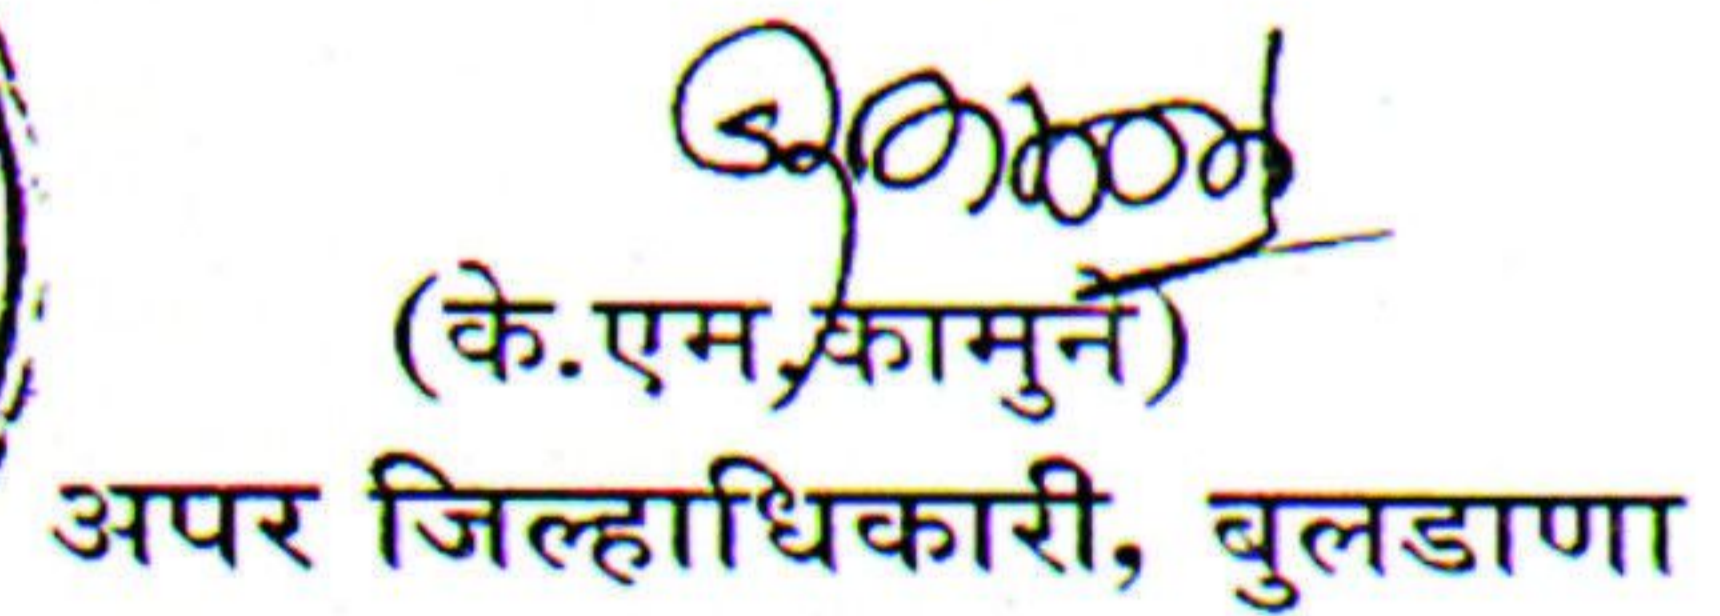 (के.एम.कामुने)
अपर जिल्हाधिकारी, बुलडाणा